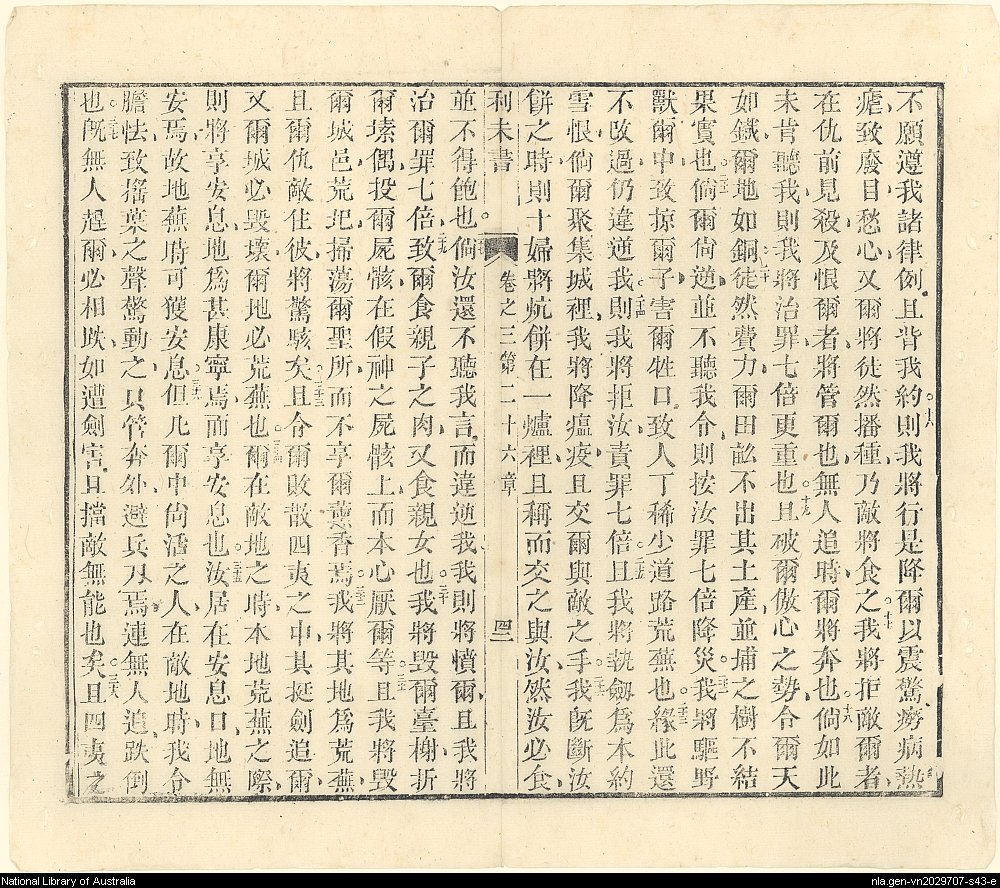 不願遵我諸律例且背我約十六則我將行是降爾以震驚癆病熱
瘧致廢目愁心又爾將徒然播種乃敵將食之十七我將拒敵爾者
在仇前見殺及恨爾者將管爾也無人追時爾將奔也十八倘如此
未肯聽我則我將治罪七倍更重也十九且破爾傲心之勢令爾天
如鐵爾地如銅二十徒然費力爾田訟不出其土產並埔之樹不結
果實也二一倘爾尙逆並不聽我令則按汝罪七倍降災二二我將驅野
獸爾中致掠爾子害爾牲口致人丁稀少道路荒蕪也二三緣此還
不改過仍違逆我二四則我將拒汝責罪七倍二五且我將執劔爲本約
雪恨倘爾聚集城裡我將降瘟疫且交爾與敵之手二六我旣斷汝
餅之時則十婦將炕餅在一爐裡且稱而交之與汝然汝必食
利未書 卷之三第二十六章 四三
並不得飽也二七倘汝還不聽我言而違逆我二八我則將憤爾且我將
治爾罪七倍二九致爾食親子之肉又食親女也三十我將毀爾臺榭折
爾塐偶投爾屍骸在假神之屍骸上而本心厭爾等三一且我將毀
爾城邑荒圯掃蕩爾聖所而不享爾薰香焉三二我將其地爲荒蕪
且爾仇敵住彼將驚駭矣三三且令爾敗散四夷之中其挺劍追爾
又爾城必毀壞爾地必荒蕪也三四爾在敵地之時本地荒蕪之際
則將享安息地爲甚康寧焉而享安息也三五汝居在安息日地無
安焉故地蕪時可獲安息三六但凡爾中尙活之人在敵地時我令
膽怯致搖葉之聲驚動之只管奔外避兵刃焉連無人追跌倒
也三七旣無人趕爾必相跌如遭劍害且擋敵無能也矣三八且四夷之